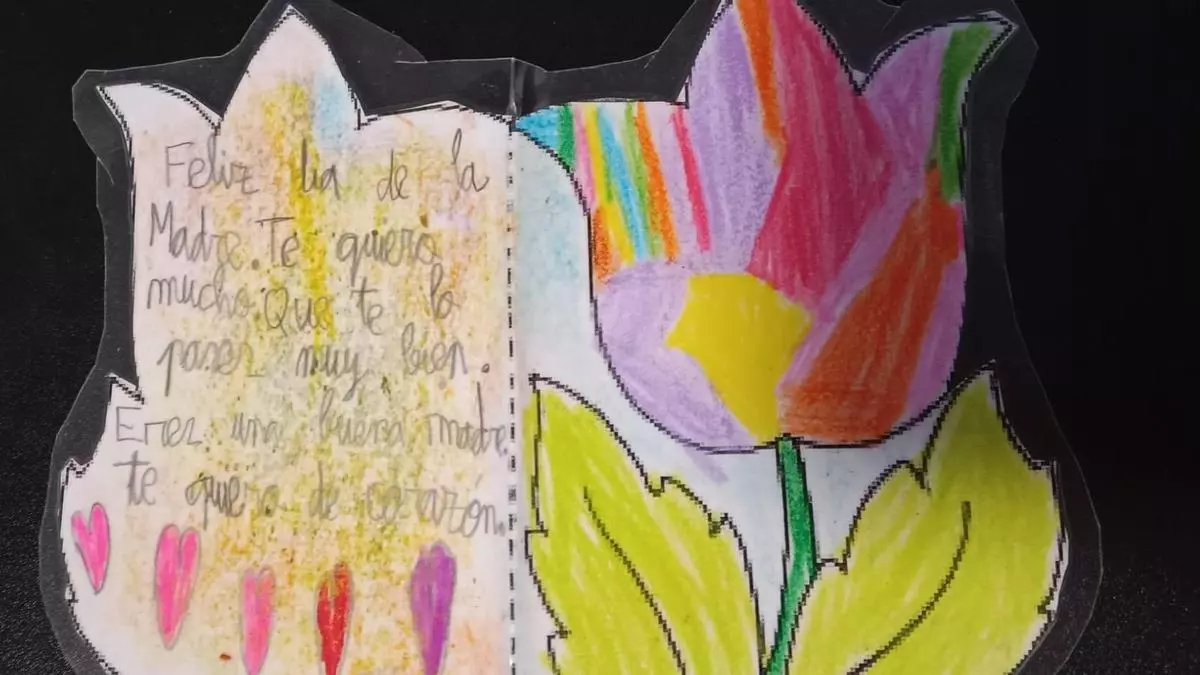 Feliz dia de la
Madre. Te quiero
mucho. Que te lo
pases muy bien.
Erez una buena madre
te quiero de corazón.